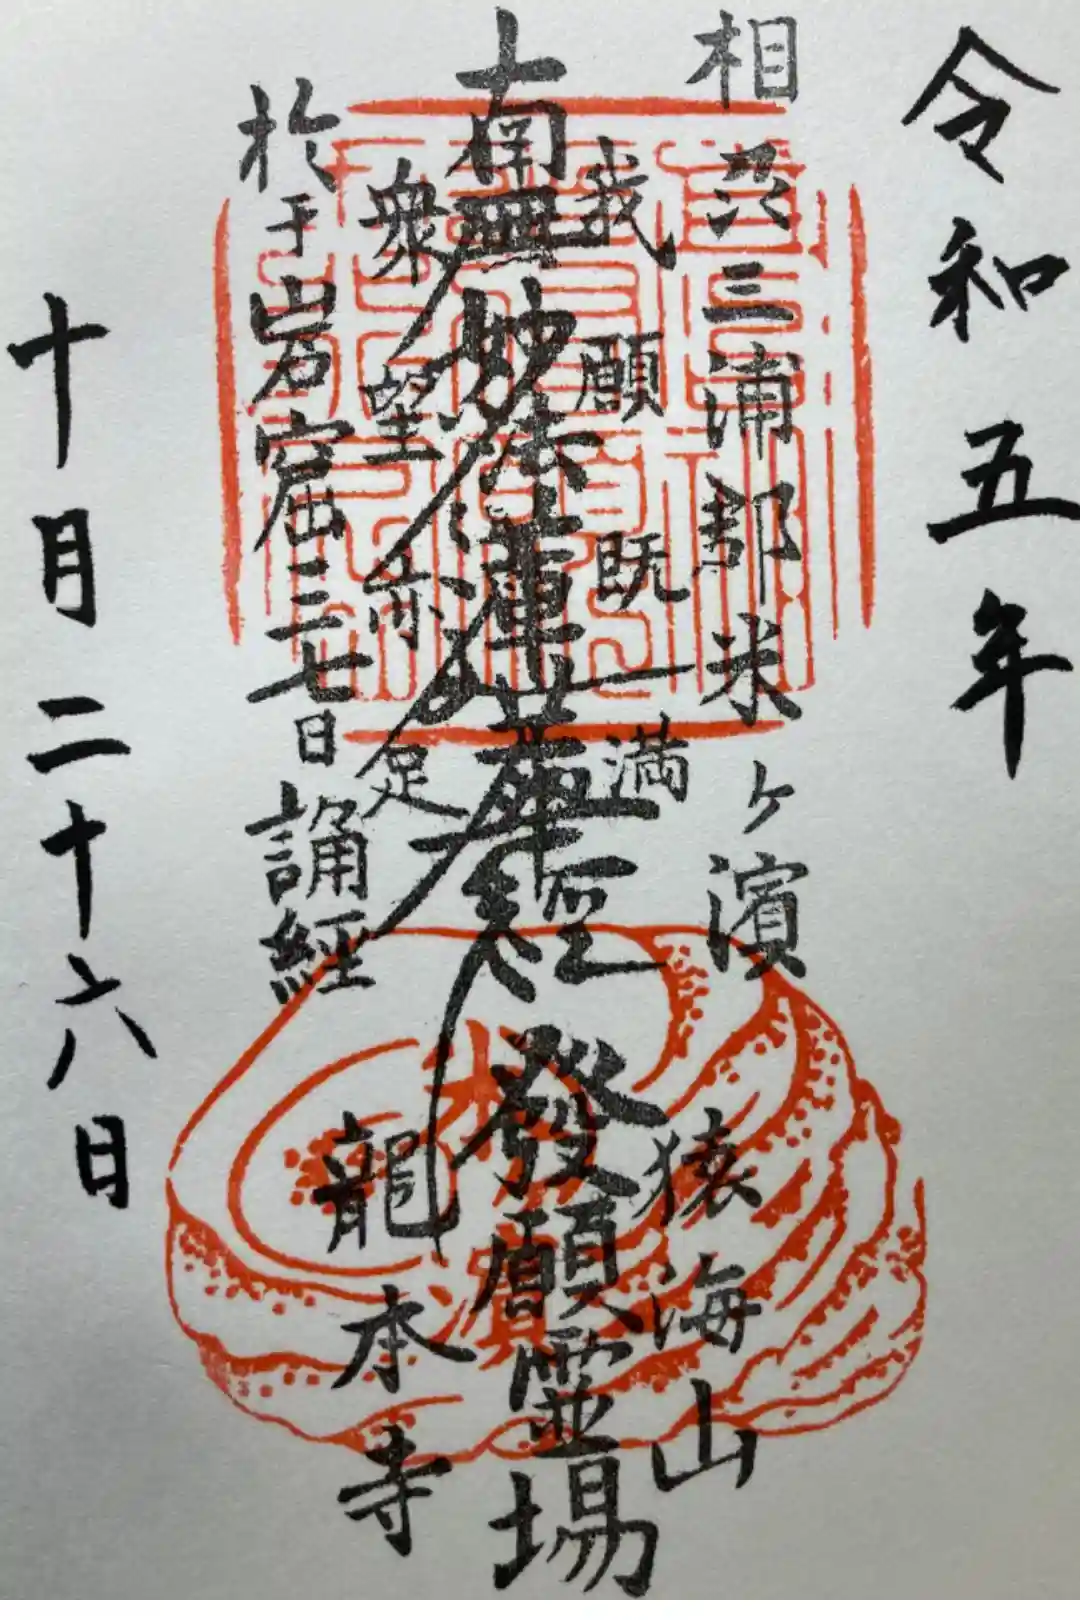 令和五年
相州三浦郡米ヶ濱
我願既満
南無妙法蓮華經
發願霊場
猿海山
衆望亦足
於于岩窟三七日誦経
龍本寺
十月二十六日